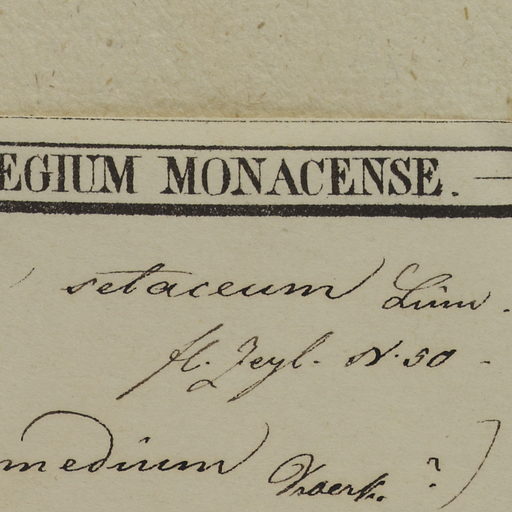 EGIUM MONACENSE.
setaceum Linn.
fl. Zeyl. N. 50 -
medium Voerk. ?)